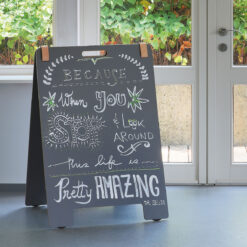 BECAUSE
When YOU
STOP
& LOOK
AROUND
this life is
Pretty AMAZING
DR. SEUSS